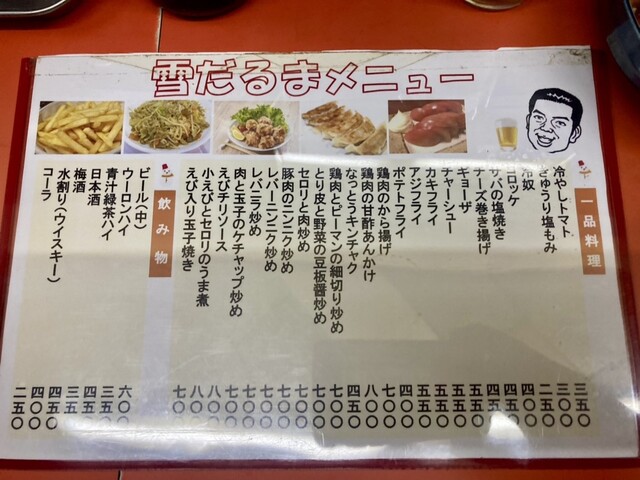 雪だるまメニュー
一品料理
冷やしトマト 三五〇
きゅうり塩もみ 三〇〇
冷奴 二五〇
コロッケ 四〇〇
サバの塩焼き 五〇〇
チーズ巻き揚げ 五五〇
ギョーザ 四五〇
チャーシュー 五五〇
カキフライ 五五〇
アジフライ 五五〇
ポテトフライ 四〇〇
鶏肉のから揚げ 七〇〇
鶏肉の甘酢あんかけ 八〇〇
なっとうキンチャク 四五〇
鶏肉とピーマンの細切り炒め 七〇〇
とり皮と野菜の豆板醤炒め 七〇〇
セロリと肉炒め 七〇〇
豚肉のニンニク炒め 七〇〇
レバーニンニク炒め 七〇〇
レバニラ炒め 七〇〇
肉と玉子のケチャップ炒め 七〇〇
えびチリソース 八〇〇
小えびとセロリのうま煮 八〇〇
えび入り玉子焼き 七〇〇
飲み物
ビール(中) 六〇〇
ウーロンハイ 三五〇
青汁緑茶ハイ 四五〇
日本酒 三五〇
梅酒 四五〇
水割り(ウイスキー) 四〇〇
コーラ 二五〇